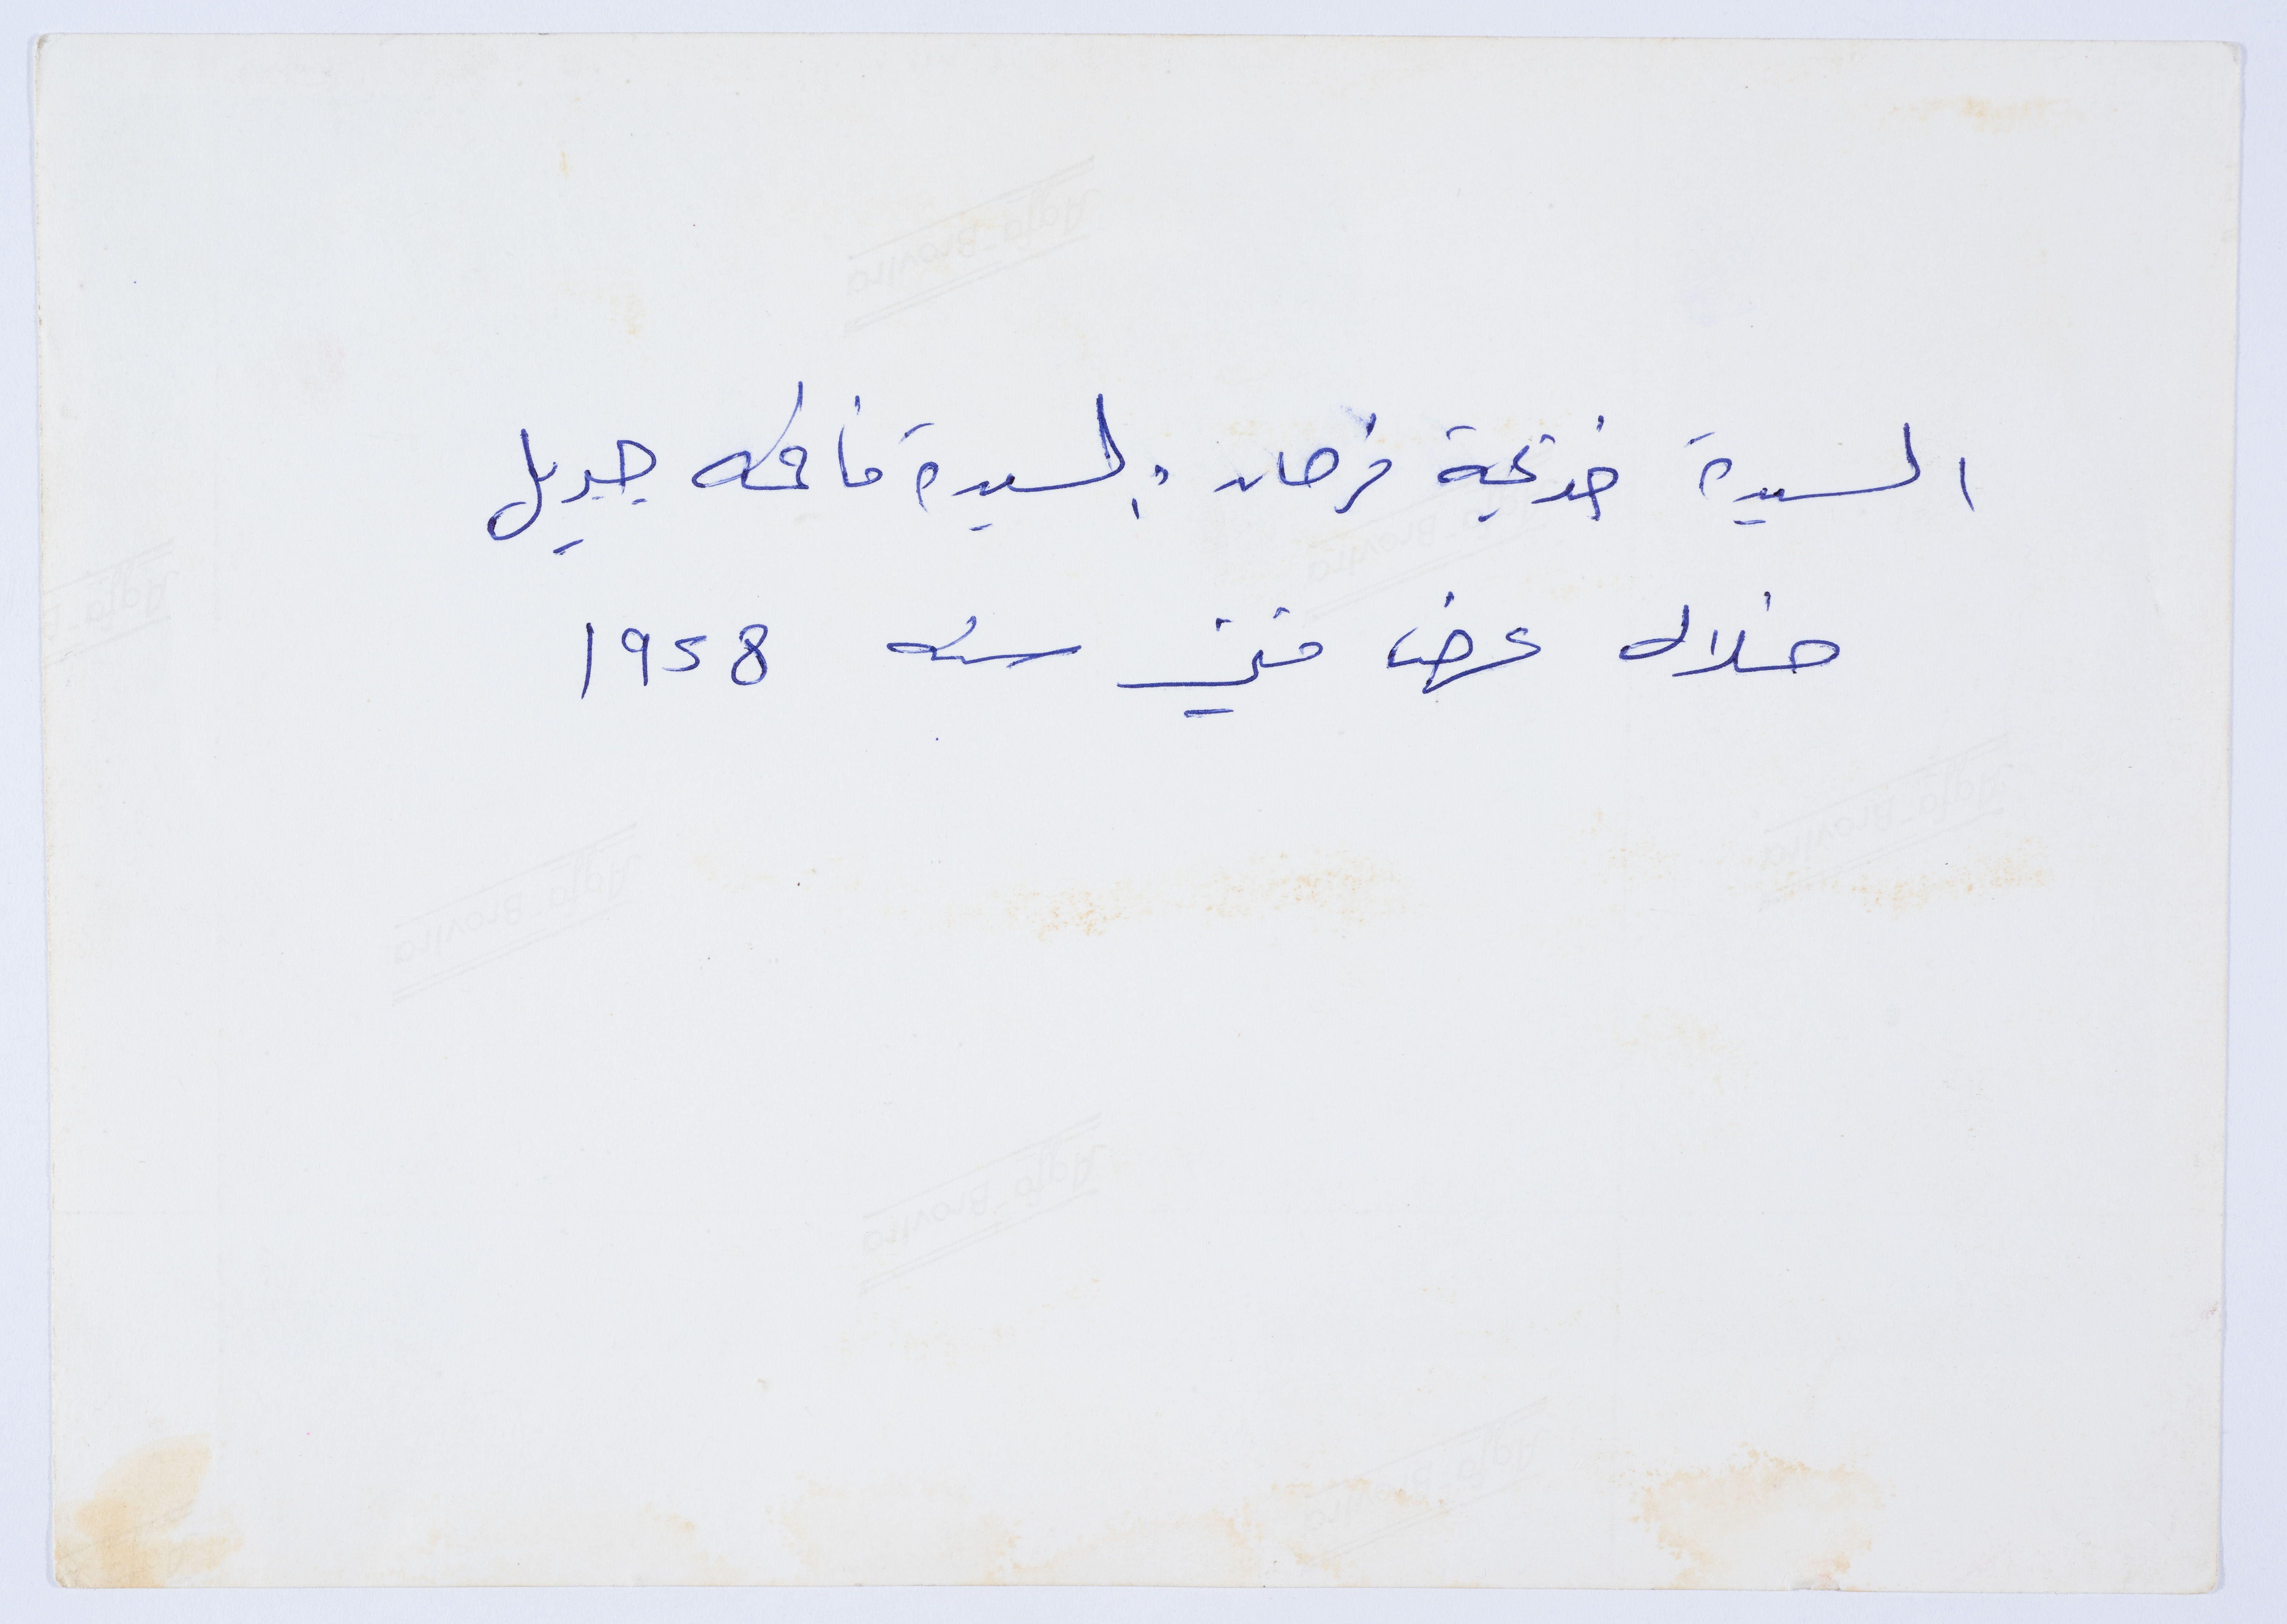 السيدة خديجة فرحان والسيدة فاطمه جبريل
خلال عرض فني سنه 1958
Agfa-Brovira
Agfa-Brovira
Agfa-B
Agfa-Brovira
Agfa-Brovira
Agfa-Brovira
Agfa-Brovira